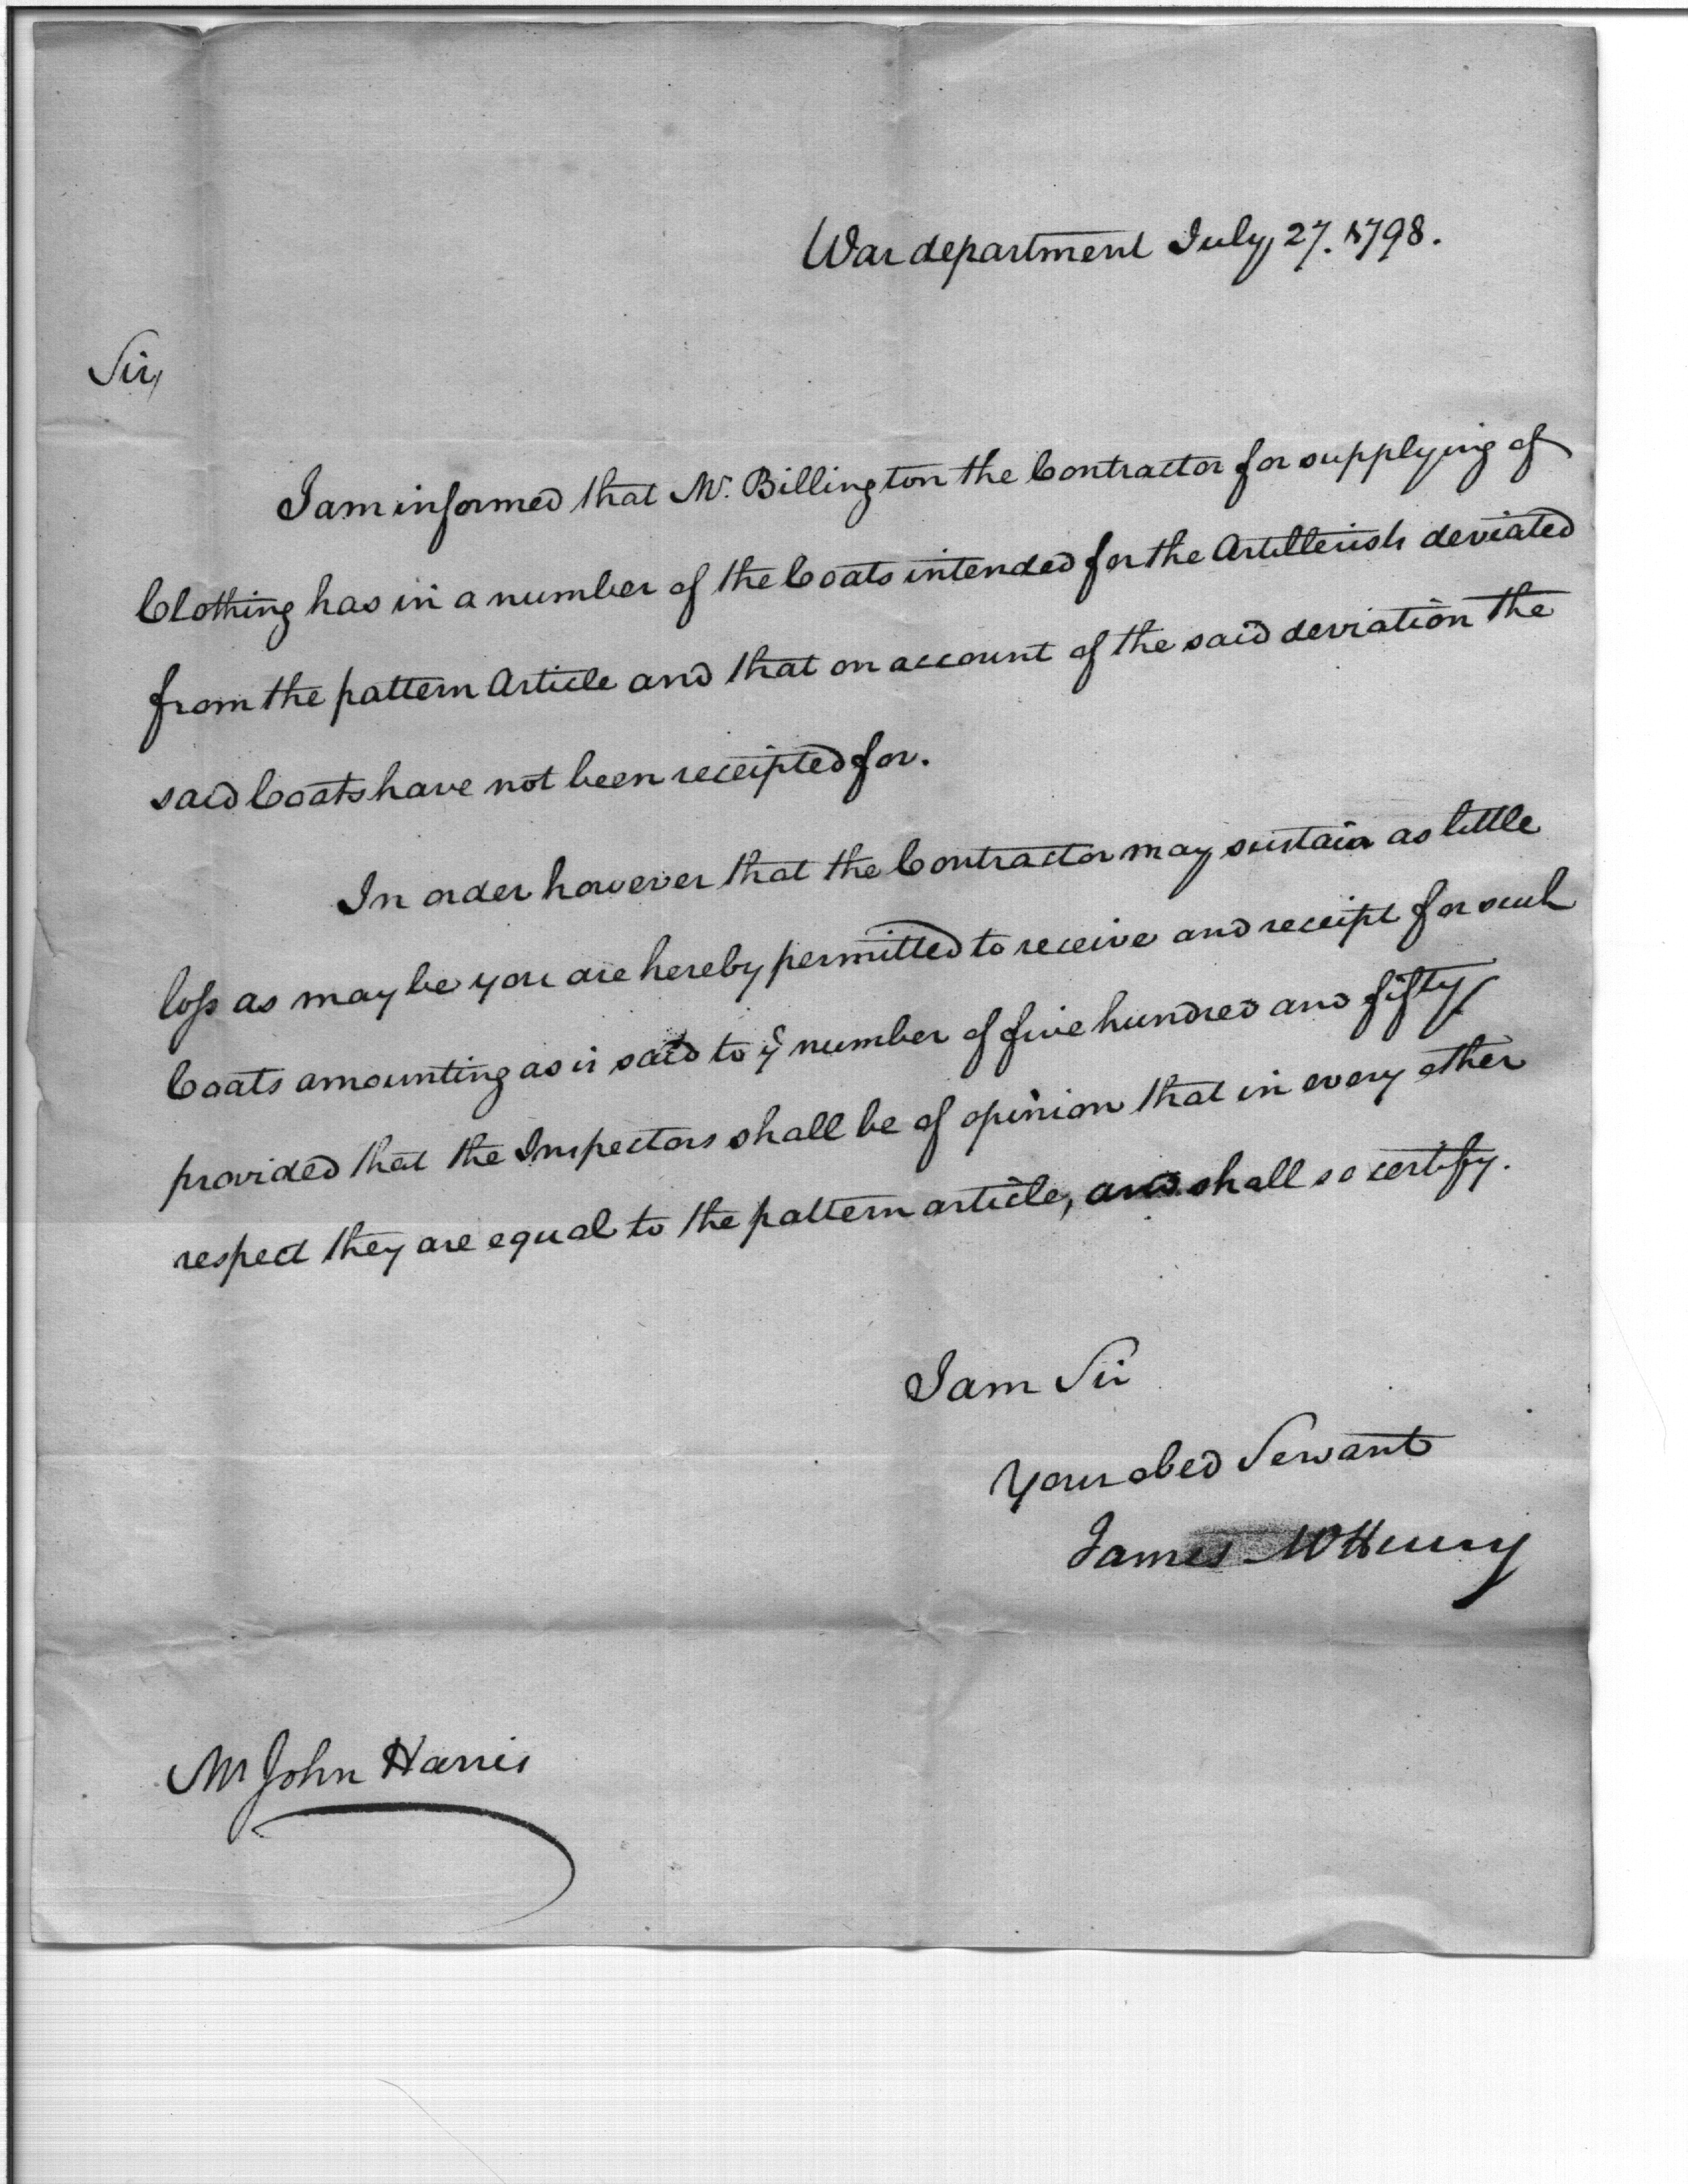 War department July 27. 1798.
Sir,
I am informed that Mr. Billington the Contractor for supplying of
Clothing has in a number of the Coats intended for the Artillerists deviated
from the pattern Article and that on account of the said deviation the
said Coats have not been receipted for.
In order however that the Contractor may sustain as little
loss as may be you are hereby permitted to receive and receipt for such
Coats amounting as is said to ye number of five hundred and fifty
provided that the Inspectors shall be of opinion that in every other
respect they are equal to the pattern article, and shall so certify.
I am Sir
Your obed Servant
James McHenry
Mr John Harris